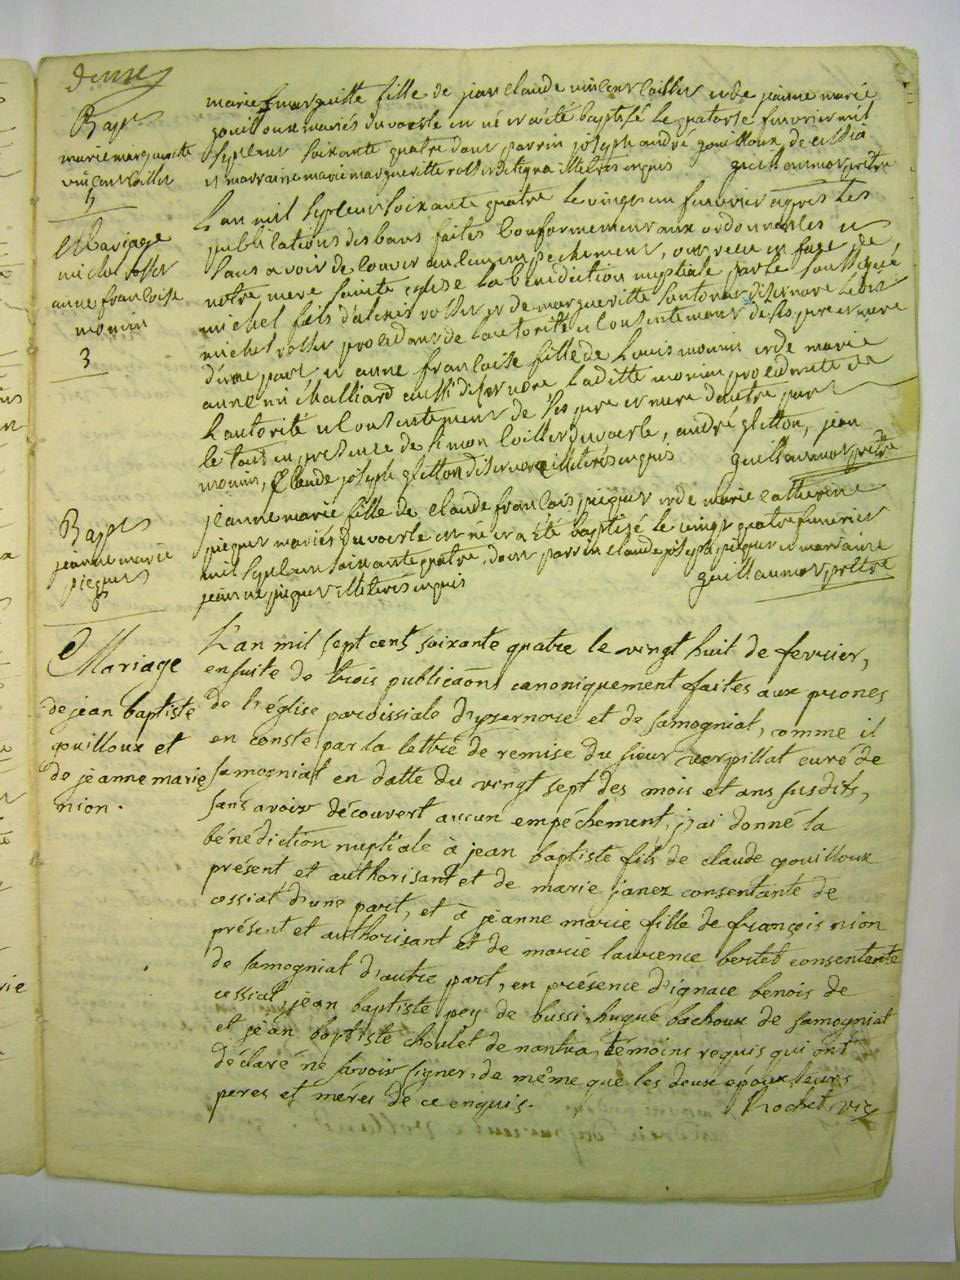 deuse
Bapt
marie marguerite
vincent caillet
5
marie marguerite fille de jean claude vincent caillet et de jeanne marie
gouilloux mariés du voerle est né et a été baptisé le quatorse feuvrier mil
sept cent soixante quatre dont parrin joseph andré gouilloux de cessia
et marraine marie marguerite rosset illiterés enquis guillaumot prêtre
Mariage
michel rosset
anne francoise
monin
3
L'an mil sept cent soixante quatre le vingt un feuvrier apres les
publications des bans faites conformement aux ordonnances et
sans avoir decouver aucun empechement, ont recu en face de
notre mere sainte eglise la benediction nuptiale par le soussigné
michel fils d'alexis rosset et de marguerite
michel rosset procedant de l'autorité et consentement de ses pere et mere
d'une part et anne francoise fille de Louis monin et de marie
anne challiard aussi disernore laditte monin procedante de
l'autorité et consentement de ses pere et mere d'autre part
le tout en presence de simon coillet du voerle, andré gletton, jean
monin, Claude joseph gletton disernore illiterés enquis guillaumot prêtre
Bapt
jeanne marie
piequet
6
jeanne marie fille de claude francois piequet et de marie catherine
piequet mariés du voerle est né et a été baptisé le vingt quatre feuvrier
mil sept cent soixante quatre dont parrin claude joseph piequet et marraine
jeanne piequet illiterés enquis guillaumot prêtre
Mariage
de jean baptiste
gouilloux et
de jeanne marie
nion.
L'an mil sept cent soixante quatre le vingt huit de fevrier,
ensuite de trois publicaõns canoniquement faites aux prones
de l'église paroissiale d'yzernore et de samogniat, comme il
en conste par la lettre de remise du sieur verpillat curé de
samogniat en datte du vingt sept des mois et ans susdits,
sans avoir découvert aucun empéchement, j'ai donné la
bénédiction nuptiale à jean baptiste fils de claude gouilloux
présent et authorisant et de marie janex consentante de
cessiat d'une part, et à jeanne marie fille de françois nion
présent et authorisant et de marie laurence bertet consentante
de samogniat d'autre part, en présence d'ignace benois de
cessiat, jean baptiste pey de bussi, hugue bachoux de samogniat
et jean baptiste choulet de nantua, témoins requis qui ont
déclaré ne savoir signer, de même que les deux époux, leurs
peres et méres de ce enquis. Rochet, vic